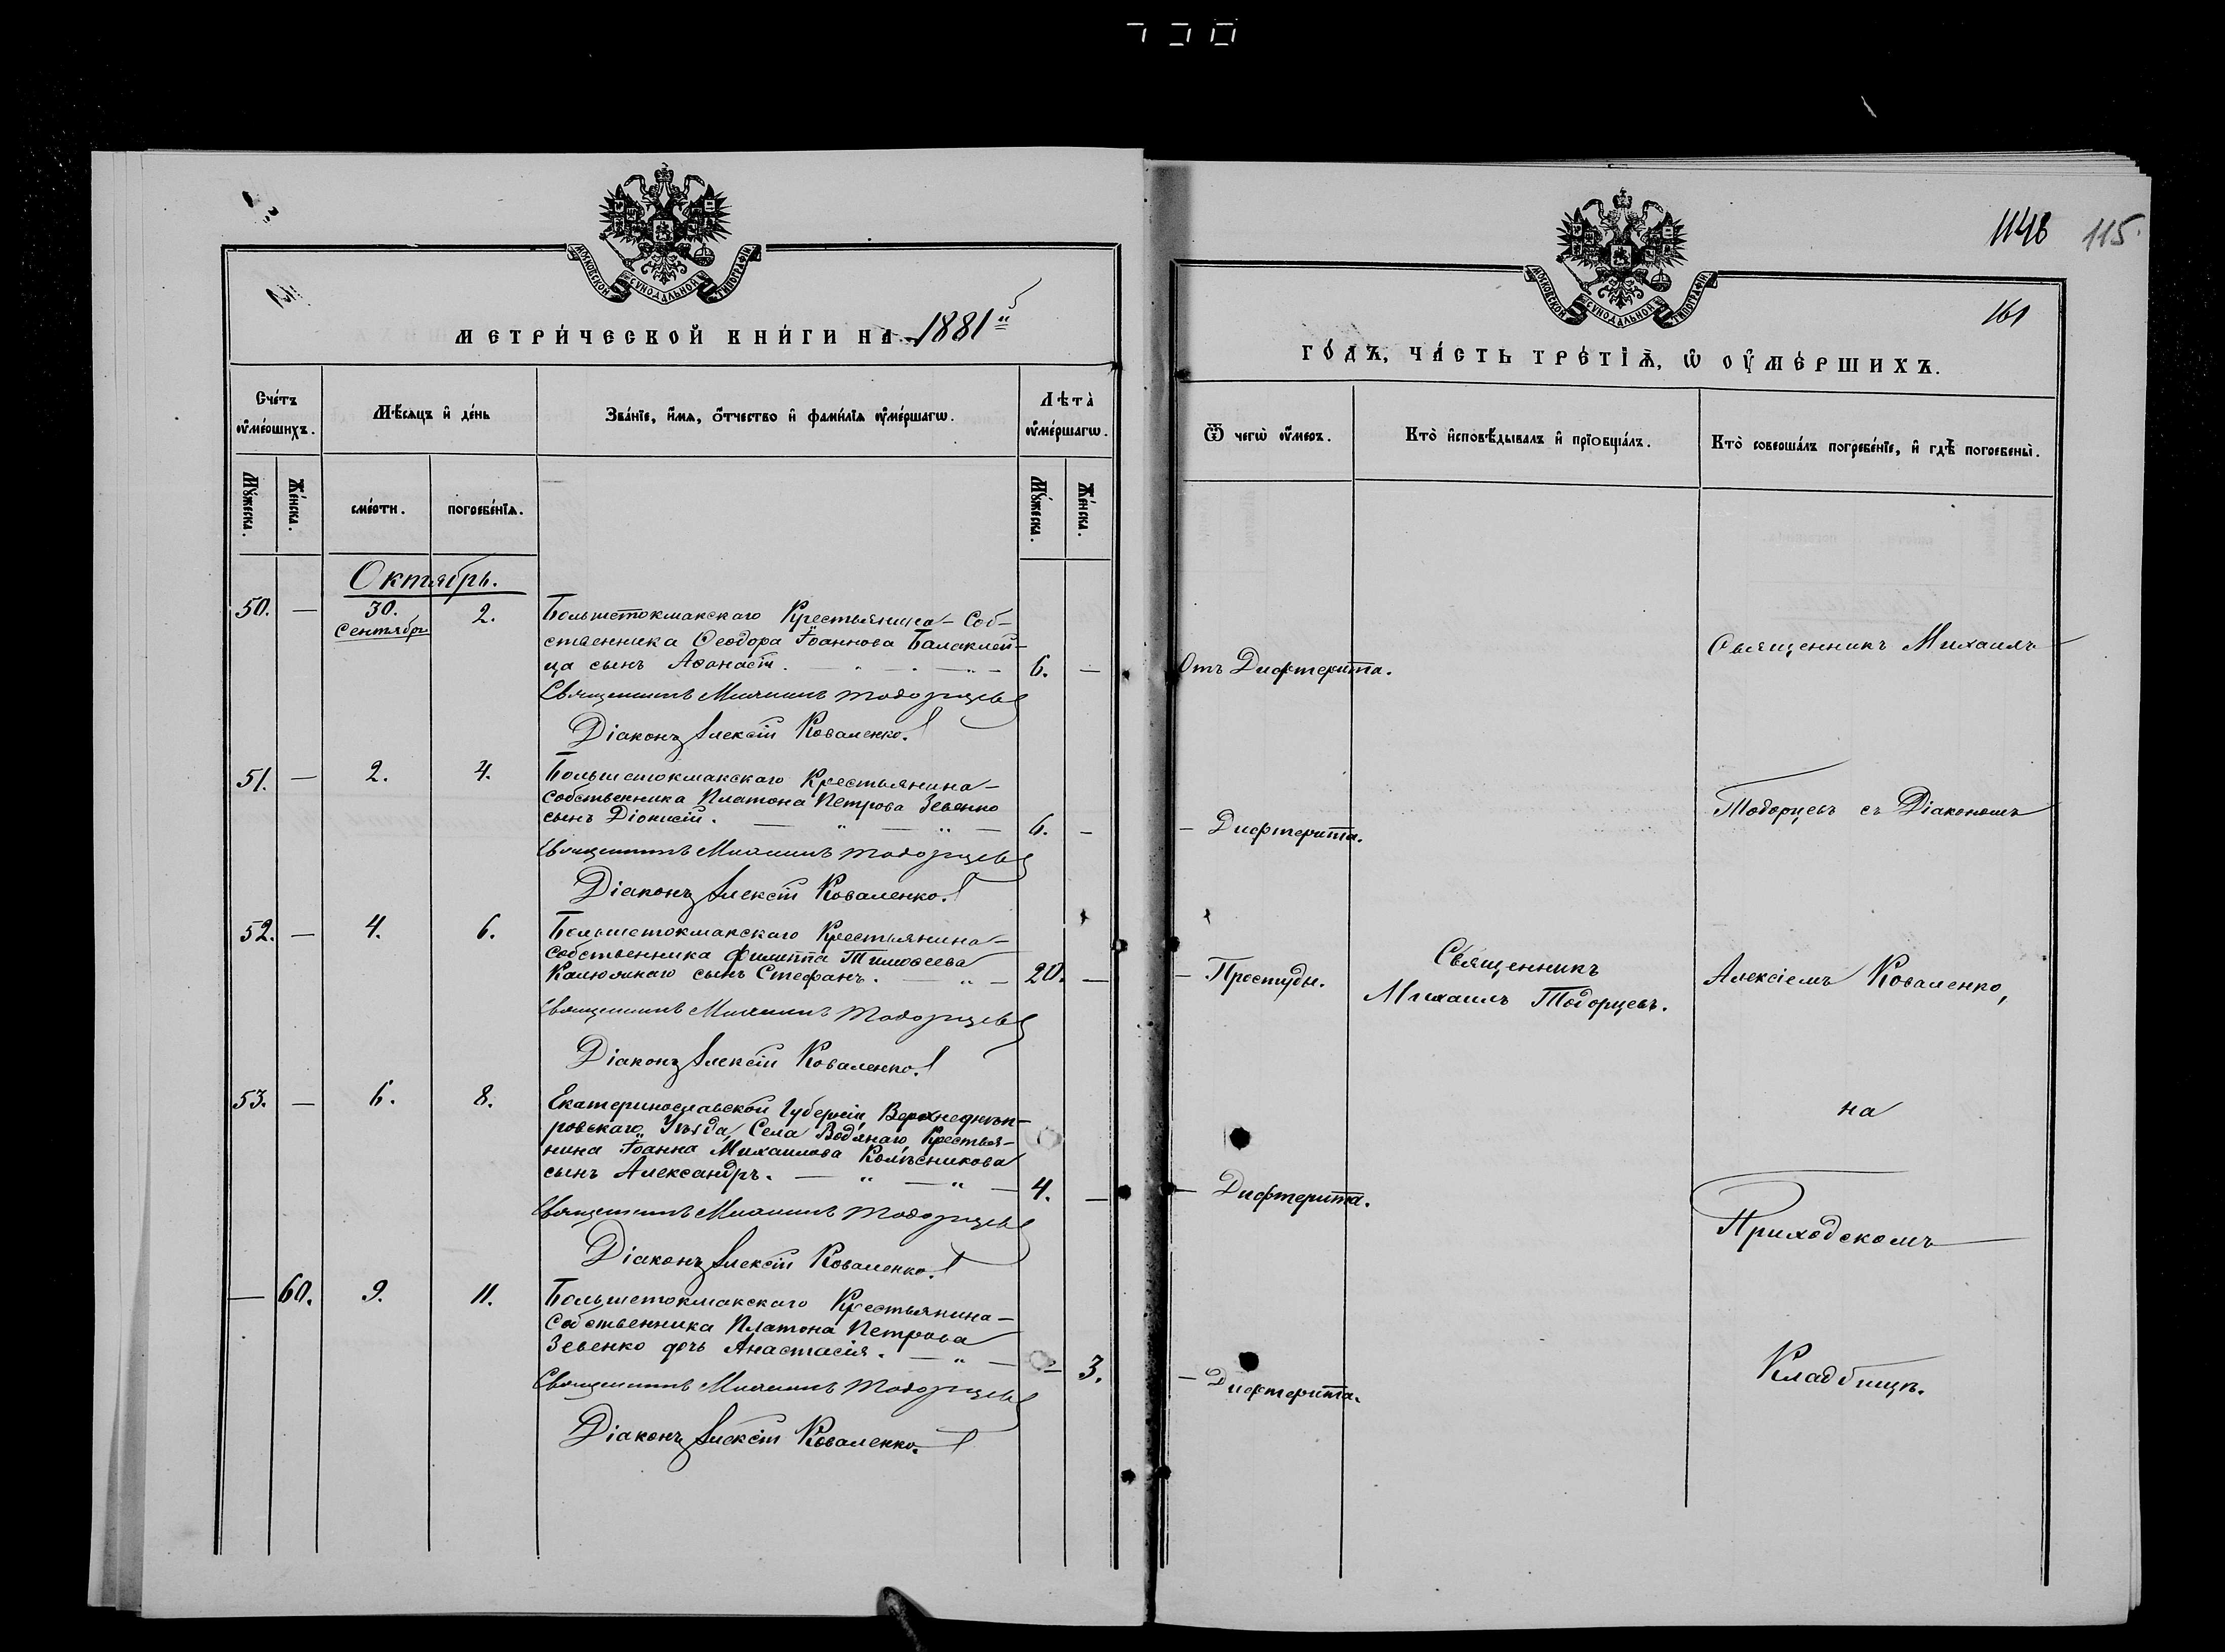 МОСКОВСКОЙ СУНОДАЛЬНОЙ ТИПОГРАФІИ
МЕТРИ́ЧЕСКОЙ КНИ́ГИ НА 1881й
Сче́тъ ᲂу҆ме́ршихъ.
Мѣ́сяцъ и҆ де́нь
Зва́нїе, и҆́мя, ѻ҆́тчество и҆ фами́лїя ᲂу҆ме́ршагѡ.
Лѣта̀ ᲂу҆ме́ршагѡ.
Мꙋ́жеска.
Же́нска.
сме́рти.
погребе́нїя.
Мꙋ́жеска.
Же́нска.
Октябрь.
50. — 30. Сентября 2.
Большетокмакскаго Крестьянина-Соб-
ственника Ѳеодора Іоаннова Балаклей-
ца сынъ Аѳанасій. 6. —
Священникъ Михаилъ Тодорцевъ
Діаконъ Алексій Коваленко.
51. — 2. 4.
Большетокмакскаго Крестьянина-
собственника Платона Петрова Зевенко
сынъ Діонисій. — „ — „ — 6. —
Священникъ Михаилъ Тодорцевъ
Діаконъ Алексій Коваленко.
52. — 4. 6.
Большетокмакскаго Крестьянина-
собственника Филиппа Тимоѳеева
сынъ Стефанъ. — „ — 20. —
Священникъ Михаилъ Тодорцевъ
Діаконъ Алексій Коваленко.
53. — 6. 8.
Екатеринославской Губерніи, Верхнеднѣп-
ровскаго Уѣзда, Села Водянаго, Крестья-
нина Іоанна Михаилова Колѣсникова
сынъ Александръ. — „ — „ — 4. —
Священникъ Михаилъ Тодорцевъ
Діаконъ Алексій Коваленко.
— 60. 9. 11.
Большетокмакскаго Крестьянина-
собственника Платона Петрова
Зевенко дочь Анастасія. — „ — — 3.
Священникъ Михаилъ Тодорцевъ
Діаконъ Алексій Коваленко.
115.
161
МОСКОВСКОЙ СУНОДАЛЬНОЙ ТИПОГРАФІИ
ГО́ДЪ, ЧА́СТЬ ТРЕ́ТЇѦ, Ѡ҆ ОУ҆МЕ́РШИХЪ.
Ѿ чегѡ̀ ᲂу҆́меръ.
Кто̀ и҆сповѣ́дывалъ и҆ прїобща́лъ.
Кто̀ соверша́лъ погребе́нїе, и҆ гдѣ̀ погребены̀.
Отъ Дифтерита.
— Дифтерита.
— Простуды.
— Дифтерита.
— Дифтерита.
Священникъ
Михаилъ Тодорцевъ.
Священникъ Михаилъ
Тодорцевъ съ Діакономъ
Алексіемъ Коваленко,
на
Приходскомъ
Кладбищѣ.